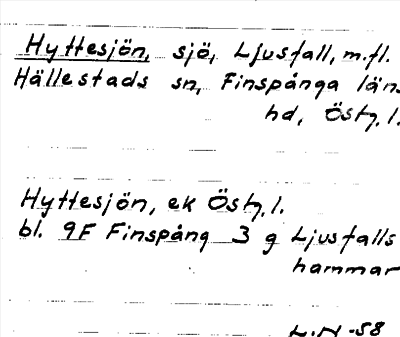 Hyttesjön, sjö, Ljusfall, m.fl.
Hällestads sn, Finspånga läns
hd, Östg.l.
Hyttesjön, ek Östg.l.
bl. 9F Finspång 3 g Ljusfalls
hammar
L.N -58